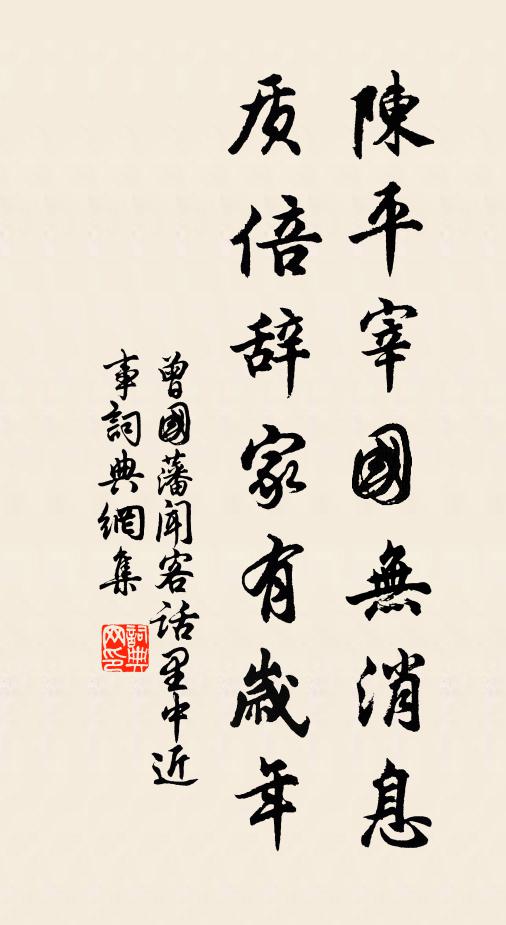 陳平宰國無消息
质倍辞家有歲年
曾國藩闻客话里中近
事詞典網集
詞典网印